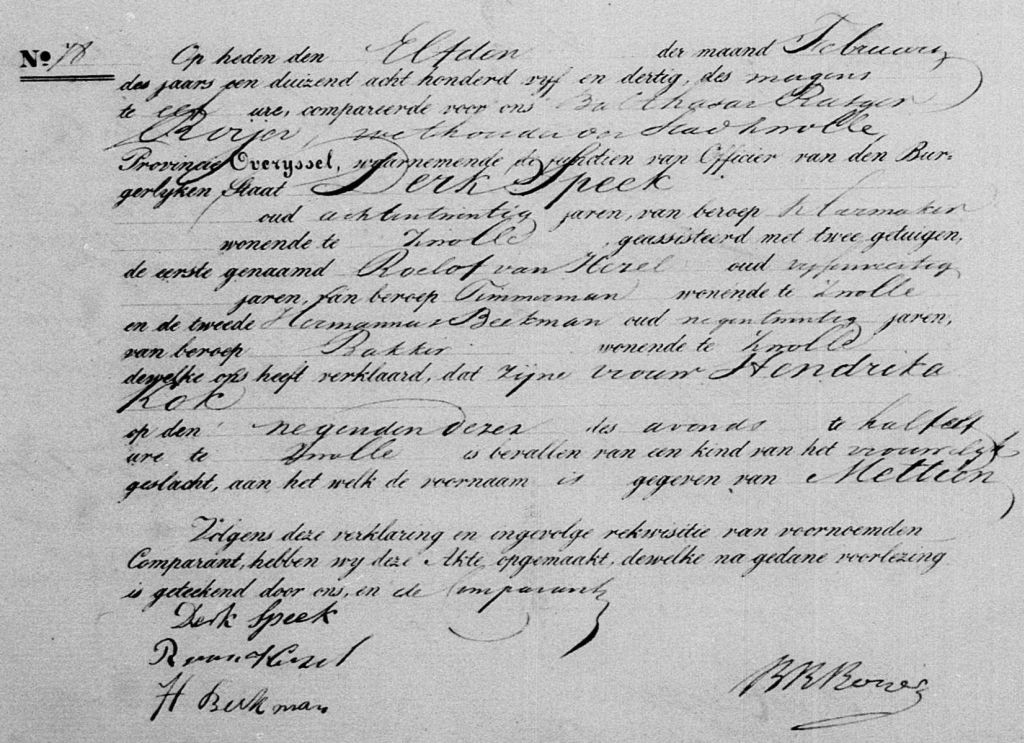 No. 78
Op heden den Elfden der maand February
des jaars een duizend acht honderd vyf en dertig, des morgens
te elf ure, compareerde voor ons Balthasar Rutger
wethouder der Stad Zwolle,
Provincie Overyssel, waarnemende de functien van Officier van den Bur-
gerlyken Staat Derk Speek
oud achtentwintig jaren, van beroep
wonende te Zwolle geassisteerd met twee getuigen,
de eerste genaamd Roelof van Hezel oud vyfenveertig
jaren, van beroep Timmerman wonende te Zwolle
en de tweede Hermannus Beekman oud negentwintig jaren,
van beroep Bakker wonende te Zwolle
dewelke ons heeft verklaard, dat zijne vrouw Hendrika
Kok
op den negenden dezer des avonds te half elf
ure te Zwolle is bevallen van een kind van het vrouwelyk
geslacht, aan het welk de voornaam is gegeven van Mettien
Volgens deze verklaring en ingevolge rekwisitie van voornoemden
Comparant, hebben wy deze Akte opgemaakt, dewelke na gedane voorlezing
is geteekend door ons, en de Comparant
Derk Speek
R van Hezel
H Beekman